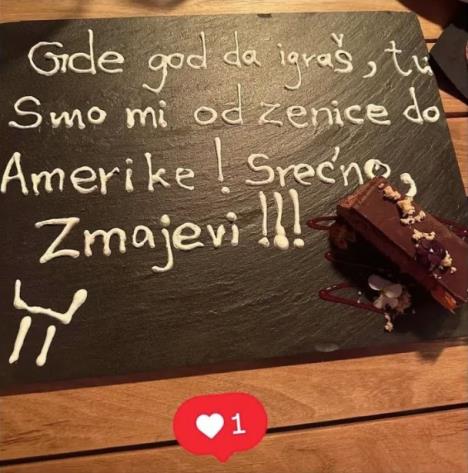 Gde god da igraš, tu
smo mi od zenice do
Amerike! Srećno,
Zmajevi!!!
1